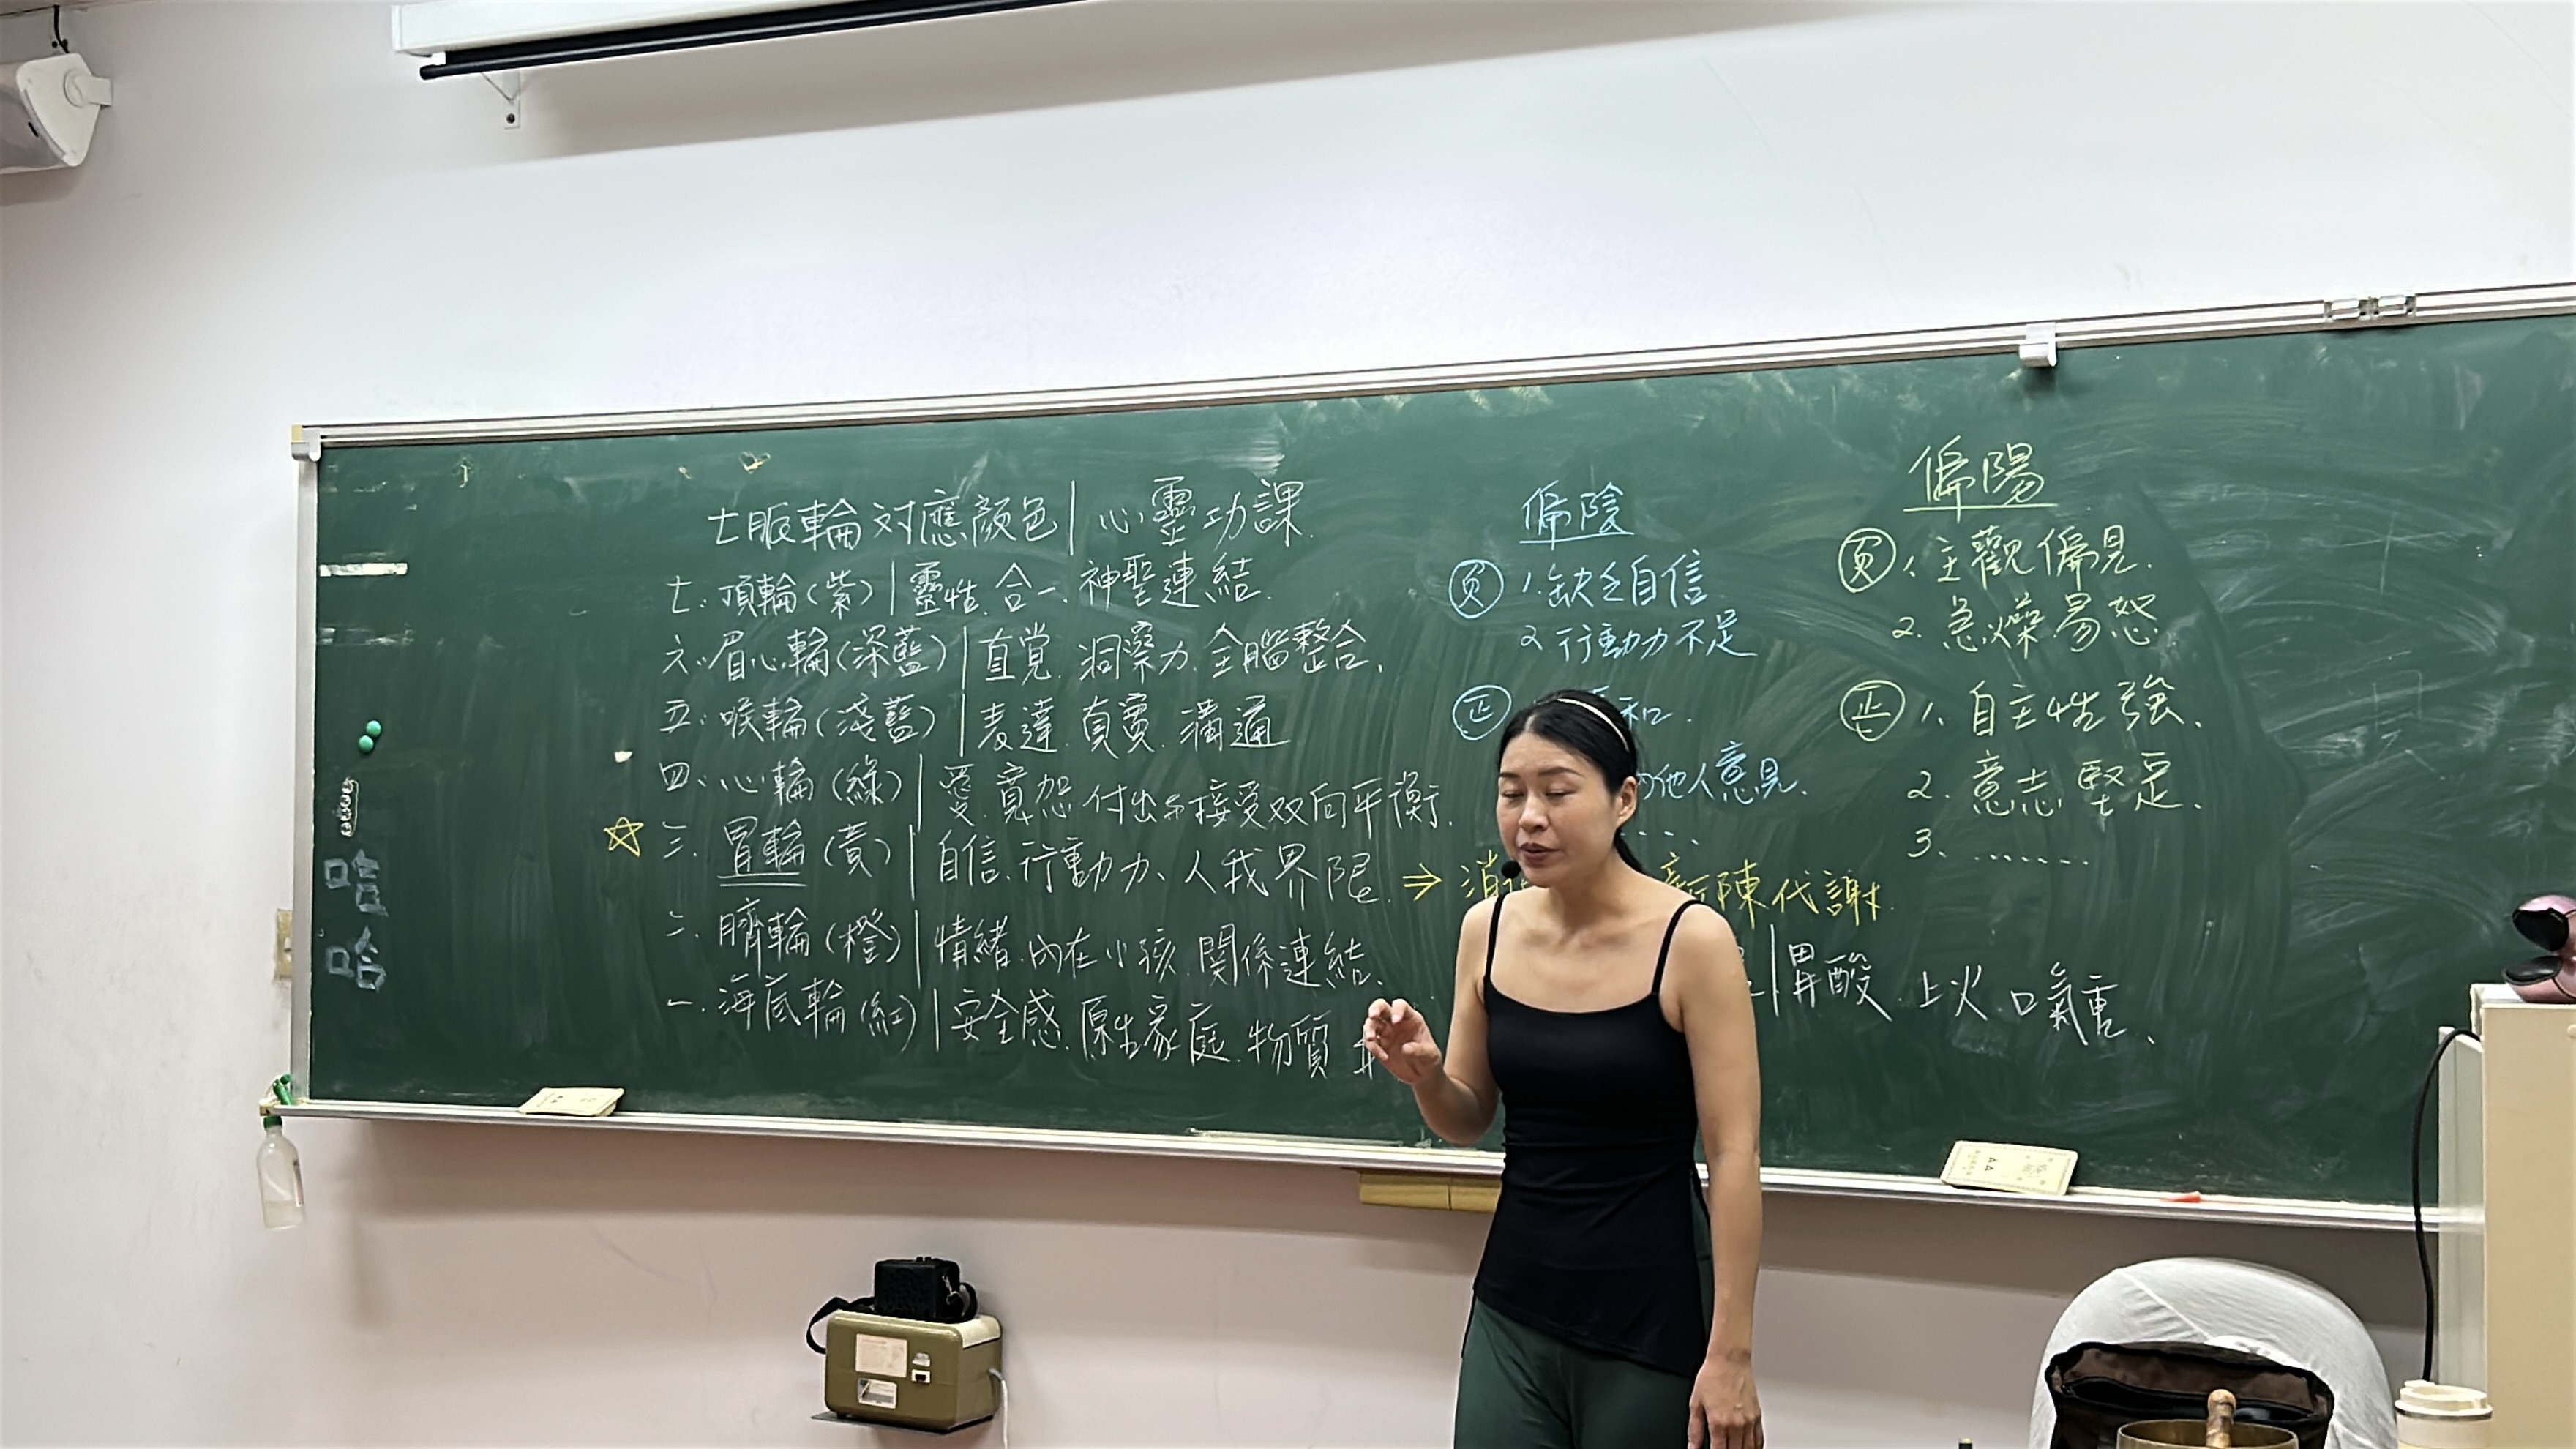 七脈輪対應顏色|心靈功課.
七.頂輪(紫)|靈性.合一.神聖連結.
六.眉心輪(深藍)|直覚.洞察力.全腦整合.
五.喉輪(淺藍)|表達.真實.溝通
四.心輪(綠)|愛.寬恕.付出与接受双向平衡.
☆三.胃輪(黃)|自信.行動力、人我界限.⇒消
新陳代謝.
二.臍輪(橙)|情緒.內在小孩.関係連結.
一.海底輪(紅)|安全感.原生家庭.物質
偏陰
負 1.缺乏自信
2.行動力不足
正
和.
他人意見.
偏陽
負 1、主觀偏見.
2.急燥易怒
正 1、自主性強、
2.意志堅定.
3、.......
|胃酸.上火.口氣重、
哈
哈